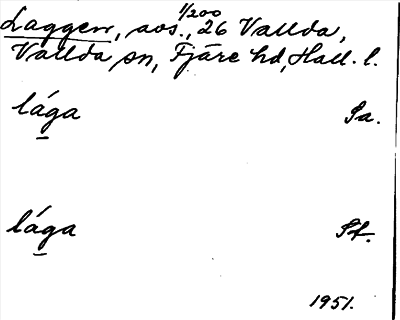 Laggen, avs., 1/200 26 Vallda,
Vallda sn, Fjäre hd, Hall. l.
lága Sa.
lága Pf.
1951.